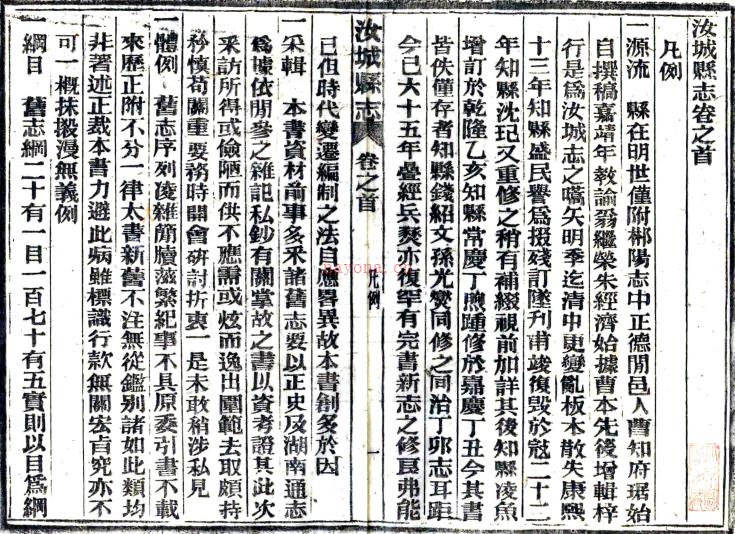 汝城縣志卷之首
凡例
一源流　縣在明世僅附郴陽志中正德間邑人曹知府琚始
自撰稿嘉靖年教諭翁繼榮朱經濟始據曹本先後增輯梓
行是爲汝城志之嚆矢明季迄清中更變亂板本散失康熙
十三年知縣盛民譽爲掇殘訂墜刋甫竣復毁於寇二十二
年知縣沈玘又重修之稍有補綴視前加詳其後知縣凌魚
增訂於乾隆乙亥知縣常慶丁煦踵修於嘉慶丁丑今其書
皆佚僅存者知縣錢紹文孫光燮同修之同治丁卯志耳距
今已六十五年疊經兵燹亦復罕有完書新志之修良弗能
汝城縣志　卷之首　凡例　一
已但時代變遷編制之法自應畧異故本書創多於因
一采輯　本書資材前事多釆諸舊志要以正史及湖南通志
爲據依閒參之雜記私鈔有關掌故之書以資考證其此次
采訪所得或儉陋而供不應需或炫而逸出圍範去取頗持
矜慎苟關重要務時開會硏討折衷一是未敢稍涉私見
一體例　舊志序列淩雜簡牘滋繁紀事不具原委引書不載
來歷正附不分一律大書新舊不注無從鑑别諸如此類均
非著述正裁本書力避此病雖標識行款無關宏肯究亦不
可一槪抹摋漫無義例
一綱目　舊志綱二十有一目一百七十有五實則以目爲綱
nayona.cn